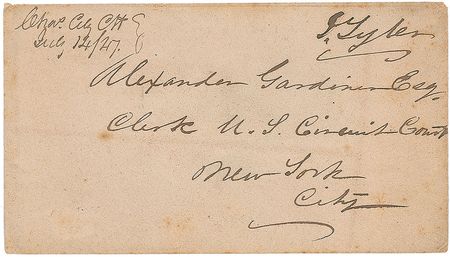 Chas. City C H
July 14/47.
J. Tyler
Alexander Gardiner Esq.
Clerk U. S. Circuit Court
New York
City